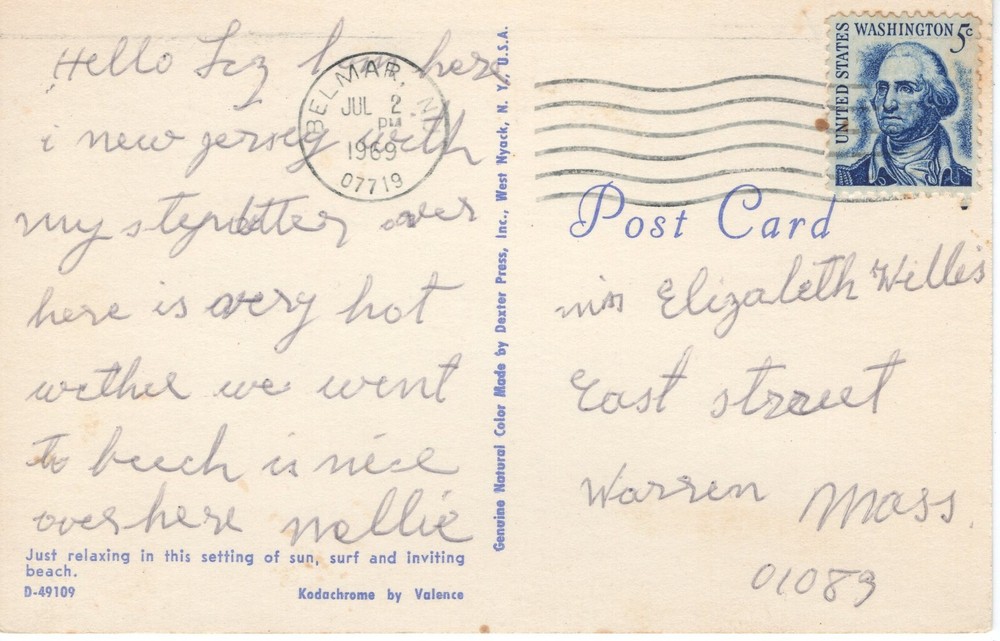 Hello Liz I am here
i new jersey with
my stepdotter over
here is very hot
wether we went
to beech is nice
over here Nellie
Just relaxing in this setting of sun, surf and inviting
beach.
D-49109
Kodachrome by Valence
Genuine Natural Color Made by Dexter Press, Inc., West Nyack, N. Y., U.S.A.
BELMAR, N
JUL 2
PM
1969
07719
UNITED STATES
WASHINGTON 5c
Post Card
mis Elizabeth Willis
East street
Warren Mass.
01083